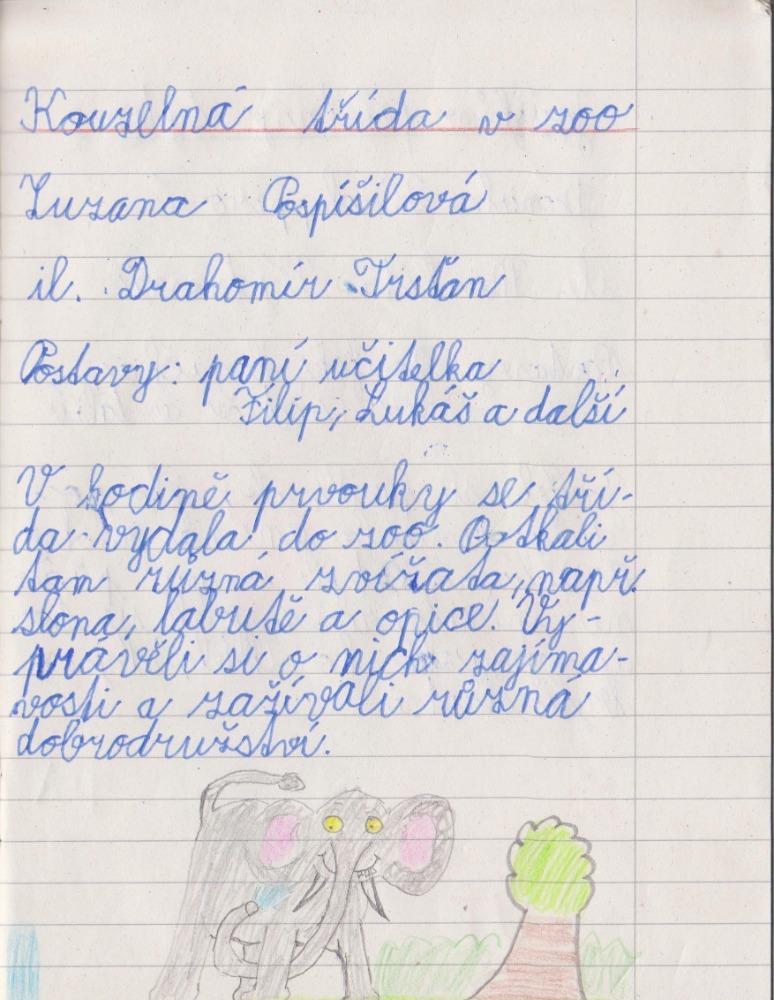 Kouzelná třída v zoo
Zuzana Pospíšilová
il. Drahomír Trsťan
Postavy: paní učitelka
Filip, Lukáš a další
V hodině prvouky se tří-
da vydala do zoo. Potkali
tam různá zvířata, např.
slona, labutě a opice. Vy-
právěli si o nich zajíma-
vosti a zažívali různá
dobrodružství.